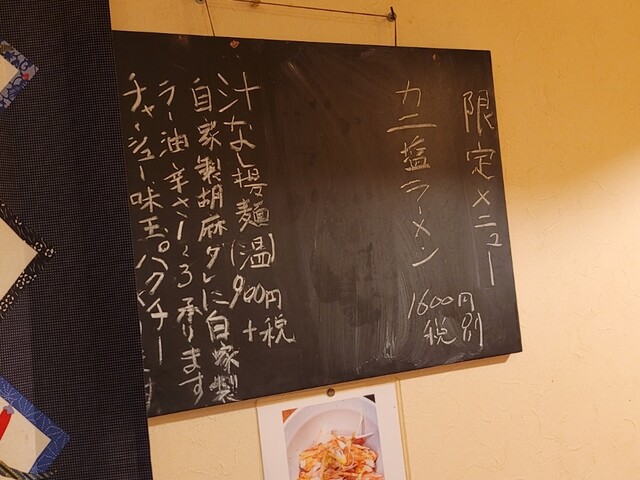 限定メニュー
カニ塩ラーメン
1600円
税別
汁なし担麺(温)900円
+税
自家製胡麻ダレに自家製
ラー油辛さ1〜3承ります
チャーシュー味玉パクチー